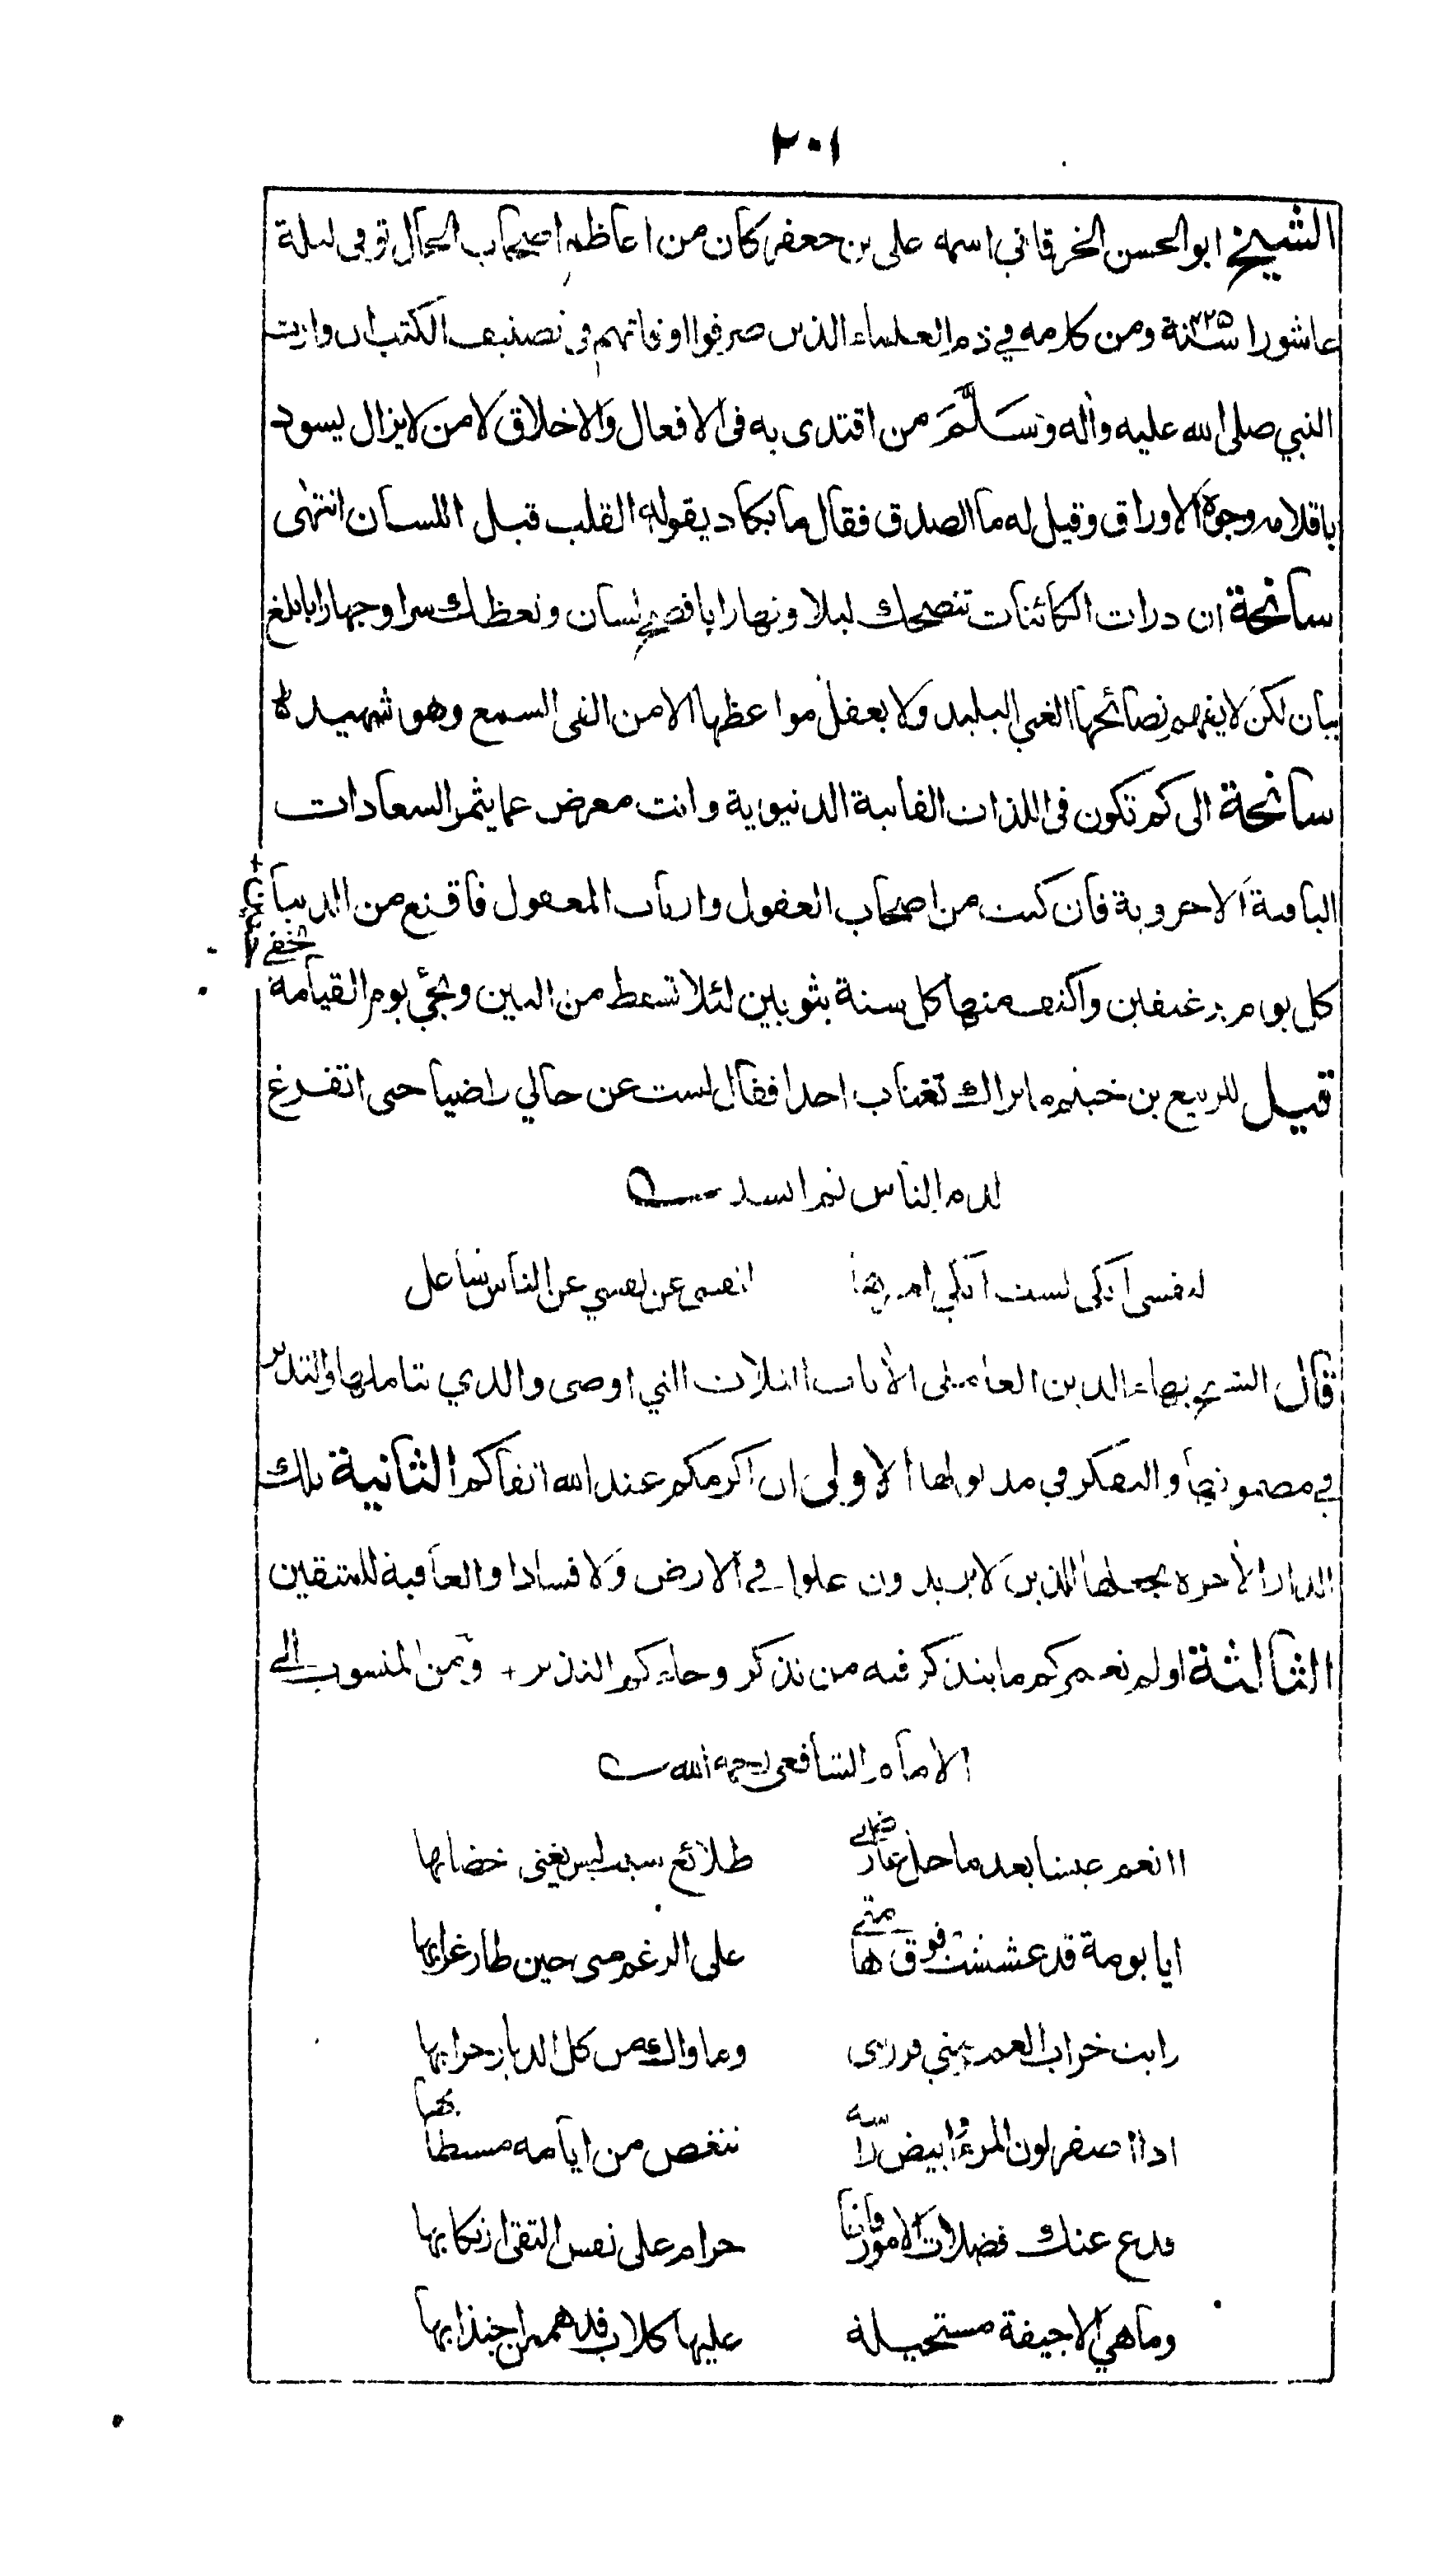 ٢٠١
الشيخ ابوالحسن الخرقاني اسمه علي بن جعفر كان من اعاظم اصحاب الحال توفي ليلة
عاشورا سنة ٤٢٥ ومن كلامه في ذم العلماء الذين صرفوا اوقاتهم في تصنيف الكتب ان وارث
النبي صلى الله عليه واله وسلم من اقتدى به في الافعال والاخلاق لا من لايزال يسود
باقلامه وجوه الاوراق وقيل له ما الصدق فقال ما يكاد يقوله القلب قبل اللسان انتهى
سانحة ان ذرات الكائنات تنصحك ليلا ونهارا بافصح لسان وتعظك سرا وجهارا بابلغ
بيان لكن لايفهم نصائحها الغبي البليد ولا يعقل مواعظها الا من القى السمع وهو شهيد
سانحة الى كم تكون في اللذات الفانية الدنيوية وانت معرض عما يثمر السعادات
الباقية الاخروية فان كنت من اصحاب العقول وارباب المعقول فاقنع من الدنيا
كل يوم برغيفين واكتف منها كل سنة بثوبين لئلا تسقط من البين وتجئ يوم القيامة
بخفي حنين
قيل للربيع بن خيثم ما نراك تغتاب احدا فقال لست عن حالي راضيا حتى اتفرغ
لذم الناس ثم انشد
لنفسي ابكي لست ابكي لغيرها لنفسي عن نفسي عن الناس شاغل
قال الشيخ بهاء الدين العاملى الايات الثلاث التي اوصى والدي بتاملها والتدبر
في مضمونها والتفكر في مدلولها الاولى ان اكرمكم عند الله اتقاكم الثانية تلك
الدار الاخرة نجعلها للذين لايريدون علوا في الارض ولا فسادا والعاقبة للمتقين
الثالثة اولم نعمركم ما يتذكر فيه من تذكر وجاءكم النذير + ومن المنسوب الى
الامام الشافعي رحمه الله
اانعم عيشا بعد ما حل عارضي طلائع شيب ليس يغني خضابها
ايا بومة قد عششت فوق هامتي على الرغم مني حين طار غرابها
رايت خراب العمر مني فزرتني وماواك من كل الديار خرابها
اذا اصفر لون المرء وابيض راسه تنغص من ايامه مستطابها
فدع عنك فضلات الامور فانها حرام على نفس التقى ارتكابها
وما هي الا جيفة مستحيلة عليها كلاب همهن اجتذابها